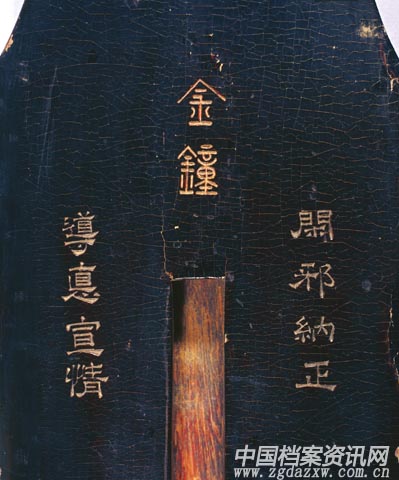 金鐘
閑邪納正
導悳宣情
中国档案资讯网
www.zgdazxw.com.cn